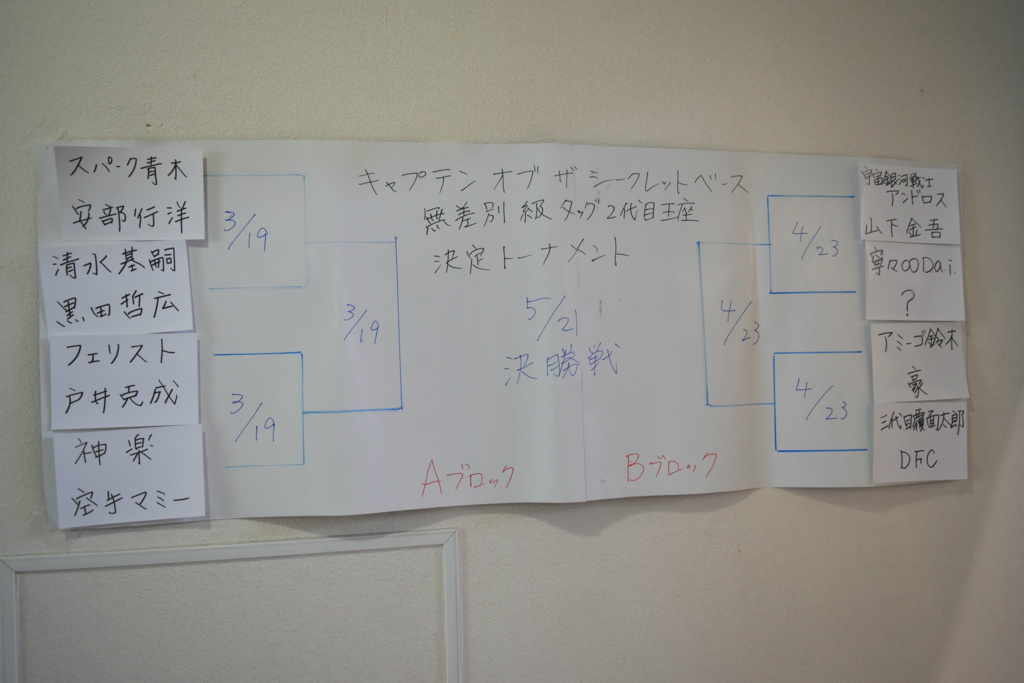 キャプテン オブ ザ シークレットベース
無差別級タッグ2代目王座
決定トーナメント
5/21
決勝戦
スパーク青木
安部行洋
清水基嗣
黒田哲広
フェリスト
戸井克成
神楽
空手マミー
3/19
3/19
3/19
Aブロック
宇宙銀河戦士
アンドロス
山下金吾
寧々∞D.a.i.
?
アミーゴ鈴木
豪
三代目覆面太郎
DFC
4/23
4/23
4/23
Bブロック